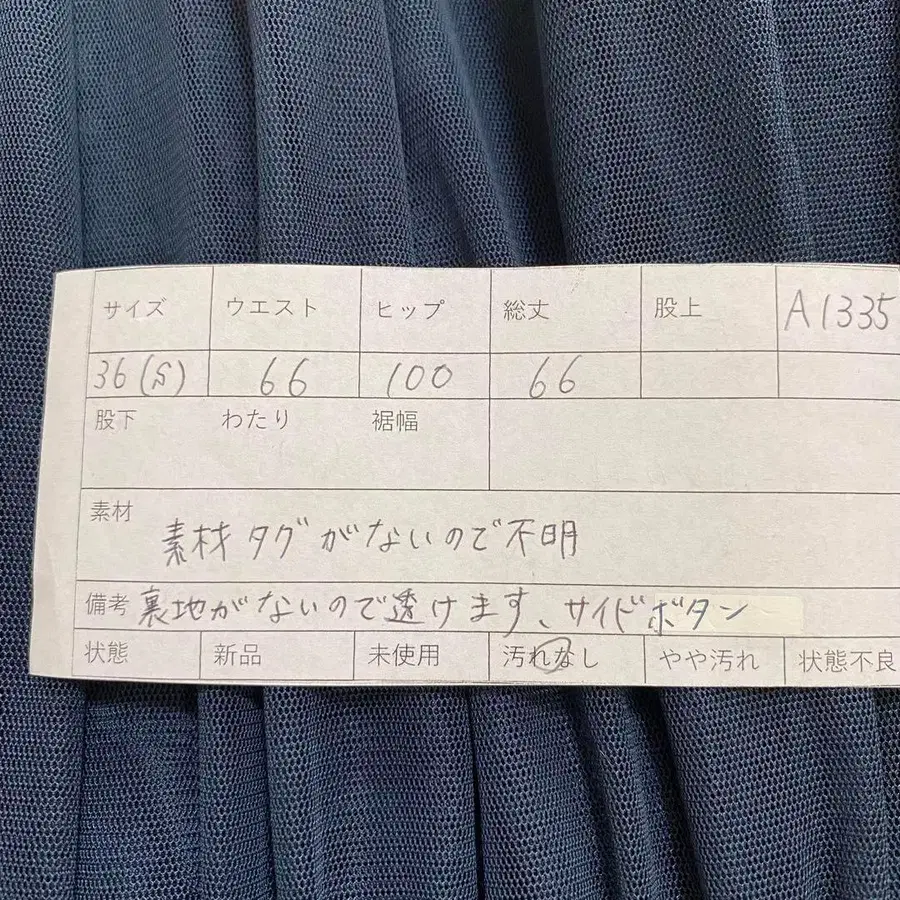 サイズ ウエスト ヒップ 総丈 股上 A1335
36(S) 66 100 66
股下 わたり 裾幅
素材 素材タグがないので不明
備考 裏地がないので透けます、サイドボタン
状態 新品 未使用 汚れなし やや汚れ 状態不良